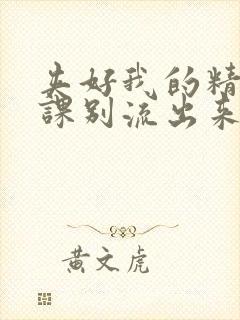 夹好我的精
课别流出来
黄文虎